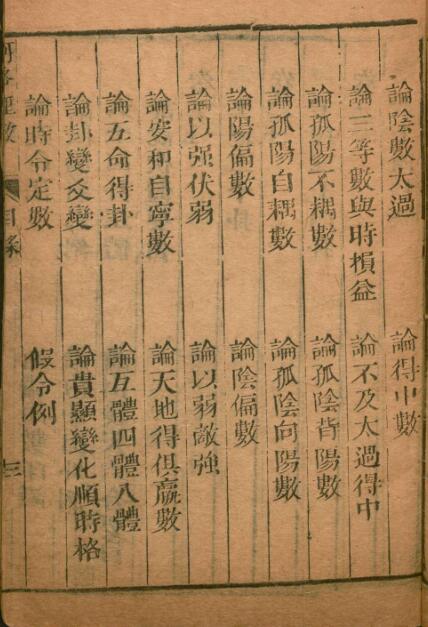 論陰數太過　論得中數
論三等數與時損益　論不及太過得中
論孤陽不耦數　論孤陰背陽數
論孤陽自耦數　論孤陰向陽數
論陽偏數　論陰偏數
論以强伏弱　論以弱敵強
論安和自寧數　論天地得俱羸數
論五命得卦　論互體四體八體
論卦變爻變　論貴顯變化順時格
論時令定數　假令例
目錄　三